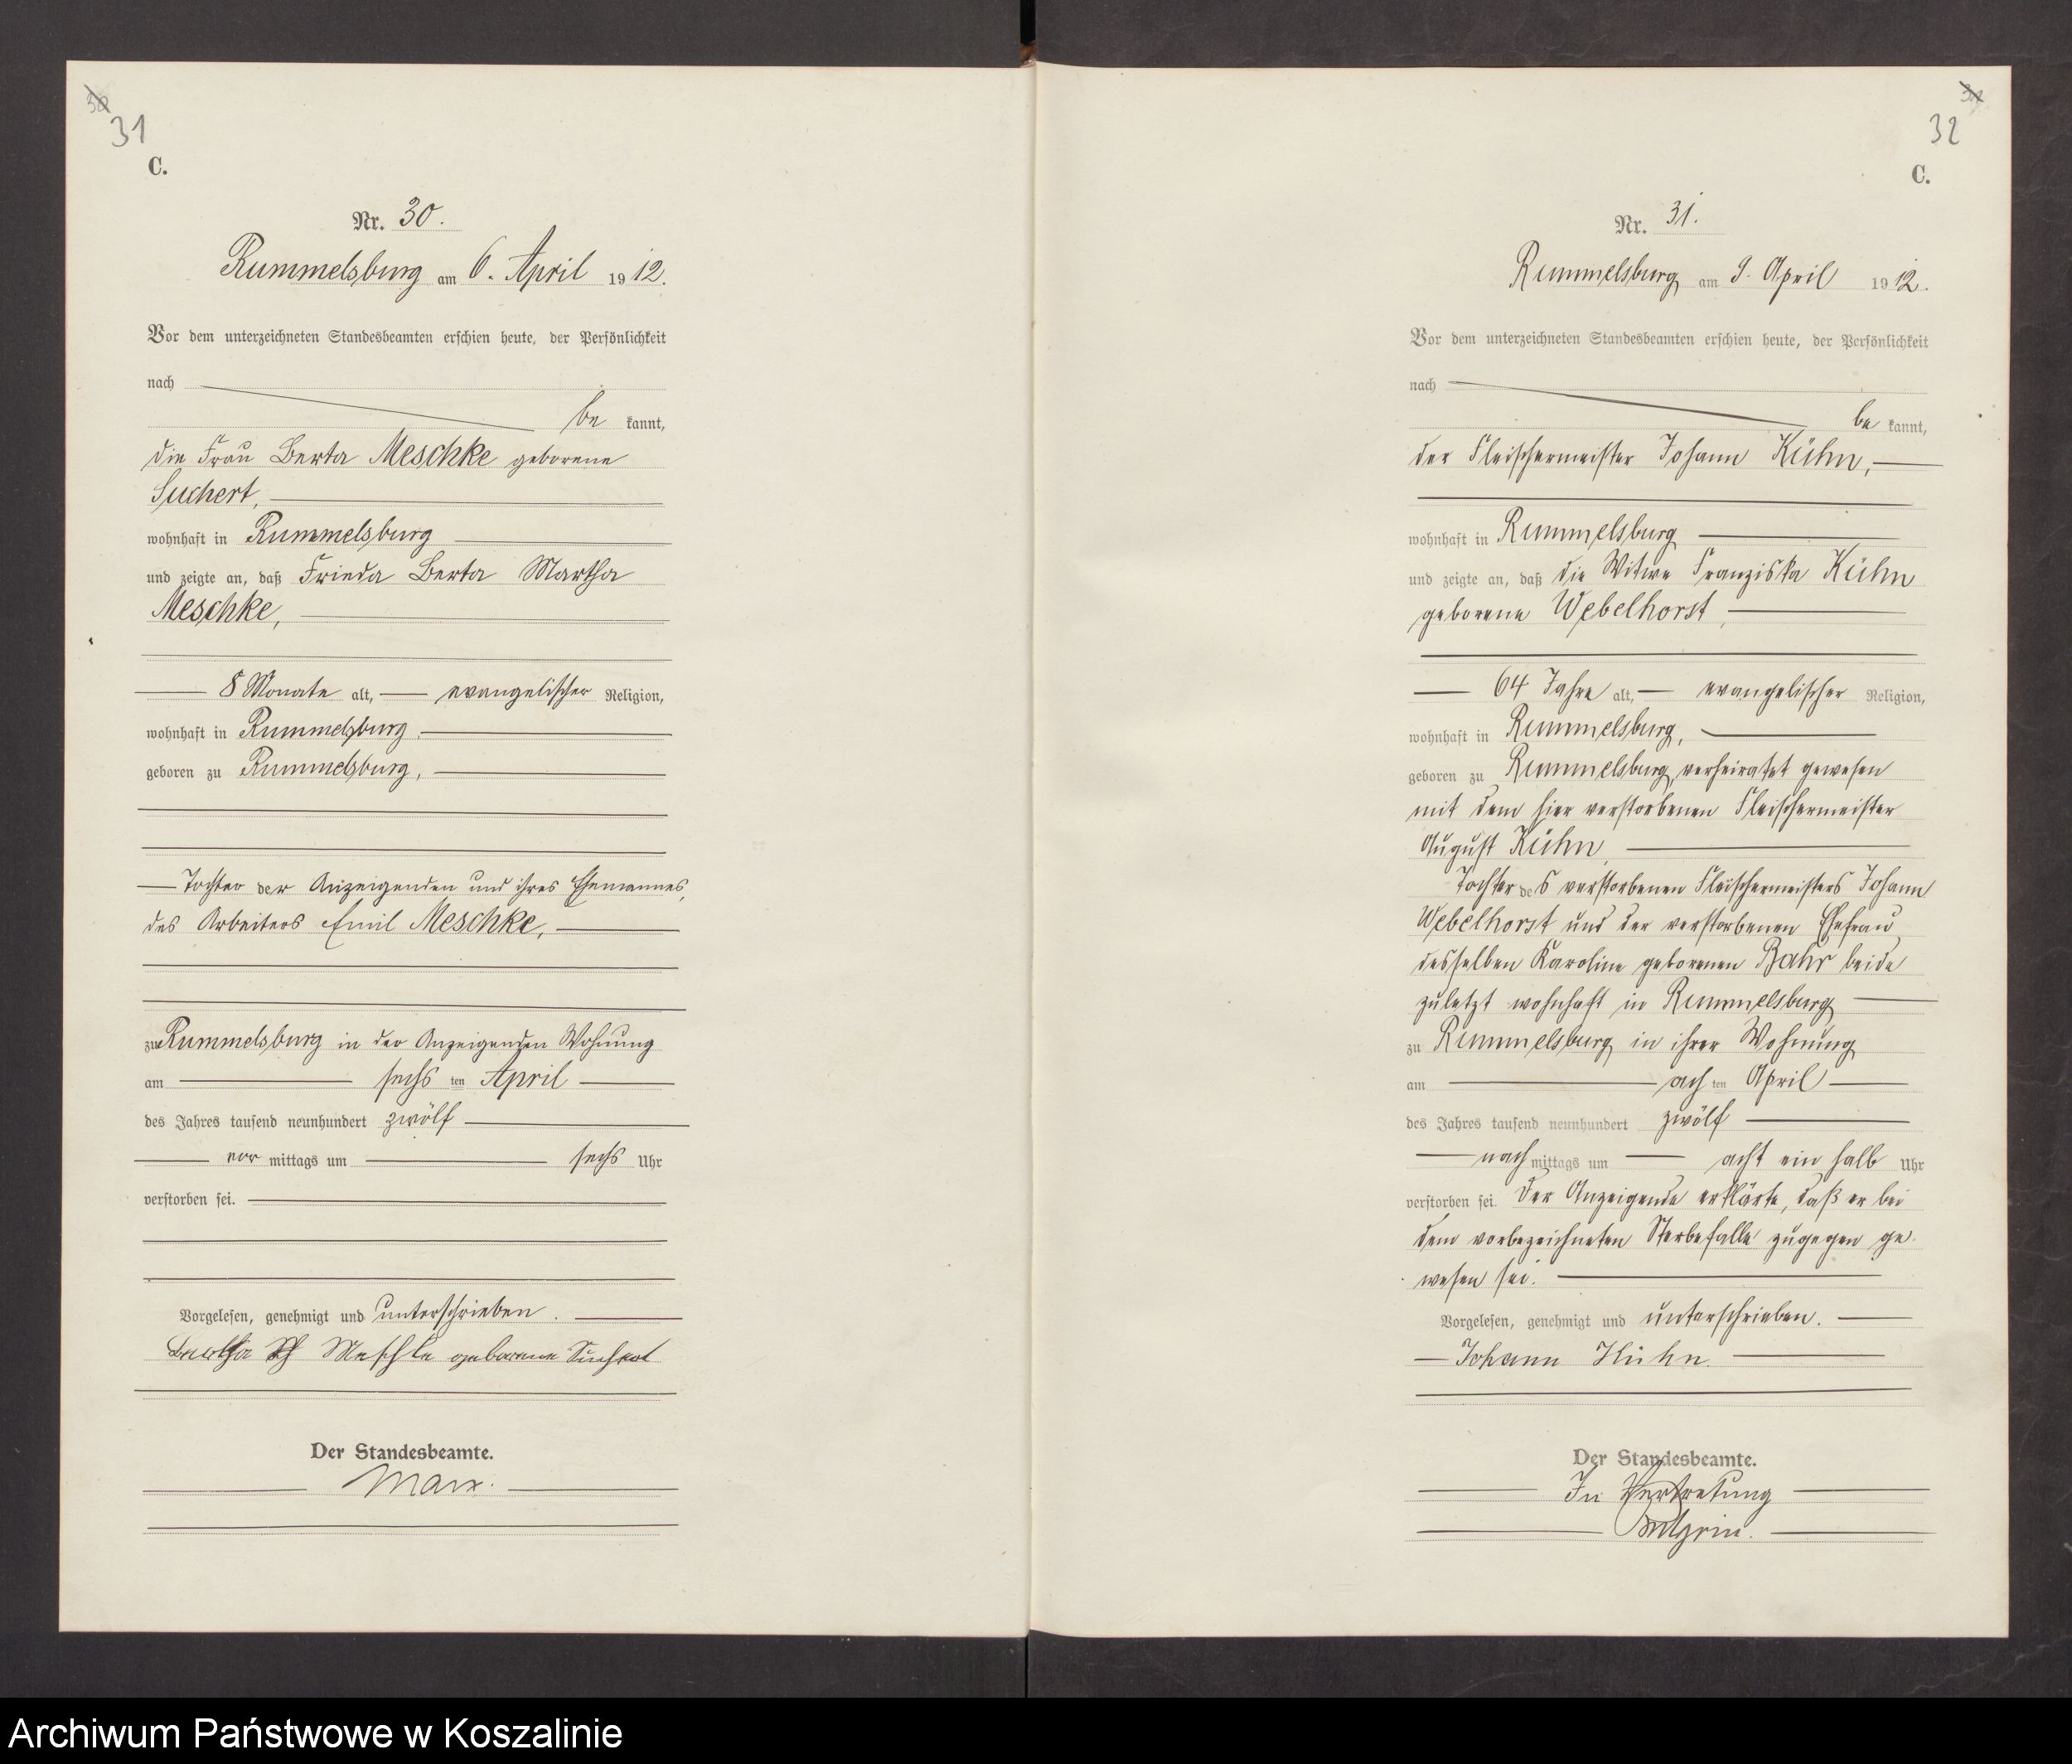 31
C.
Nr. 30.
Rummelsburg am 6. April 1912.
Vor dem unterzeichneten Standesbeamten erschien heute, der Persönlichkeit
nach
be kannt,
die Frau Berta Meschke geborene
Suchert,
wohnhaft in Rummelsburg
und zeigte an, daß Frieda Berta Martha
Meschke,
8 Monate alt, evangelischer Religion,
wohnhaft in Rummelsburg,
geboren zu Rummelsburg,
Tochter der Anzeigenden und ihres Ehemannes,
des Arbeiters Emil Meschke,
zu Rummelsburg in der Anzeigenden Wohnung
am sechs ten April
des Jahres tausend neunhundert zwölf
vor mittags um sechs Uhr
verstorben sei.
Vorgelesen, genehmigt und unterschrieben.
Meschke geborene
Der Standesbeamte.
Marx.
32
C.
Nr. 31.
Rummelsburg am 9. April 1912.
Vor dem unterzeichneten Standesbeamten erschien heute, der Persönlichkeit
nach
be kannt,
der Fleischermeister Johann Kühn,
wohnhaft in Rummelsburg
und zeigte an, daß die Witwe Franziska Kühn
geborene Webelhorst,
64 Jahre alt, evangelischer Religion,
wohnhaft in Rummelsburg,
geboren zu Rummelsburg, verheiratet gewesen
mit dem hier verstorbenen Fleischermeister
August Kühn,
Tochter des verstorbenen Fleischermeisters Johann
Webelhorst und der verstorbenen Ehefrau
desselben Karoline geborenen Bahr beide
zuletzt wohnhaft in Rummelsburg
zu Rummelsburg in ihrer Wohnung
am ach ten April
des Jahres tausend neunhundert zwölf
nach mittags um acht ein halb Uhr
verstorben sei. Der Anzeigende erklärte, daß er bei
dem vorbezeichneten Sterbefalle zugegen ge-
wesen sei.
Vorgelesen, genehmigt und unterschrieben.
Johann Kühn.
Der Standesbeamte.
In Vertretung
Archiwum Państwowe w Koszalinie